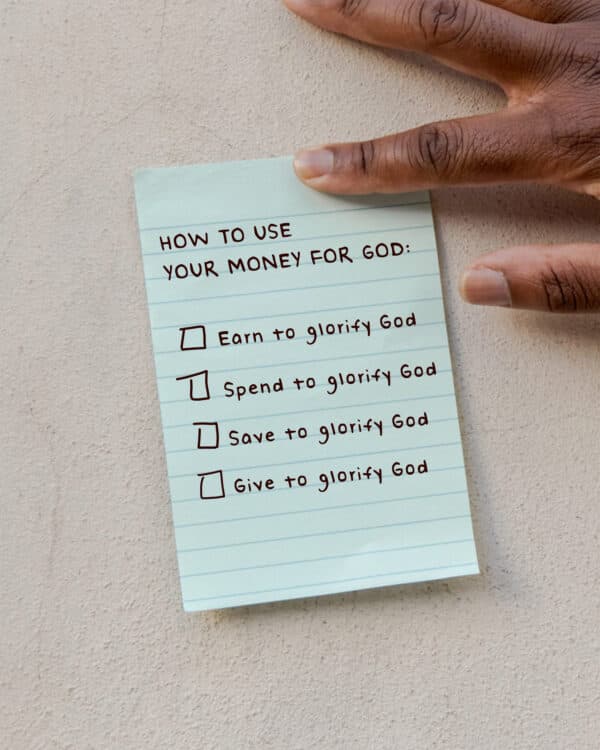 HOW TO USE
YOUR MONEY FOR GOD:
Earn to glorify God
Spend to glorify God
Save to glorify God
Give to glorify God